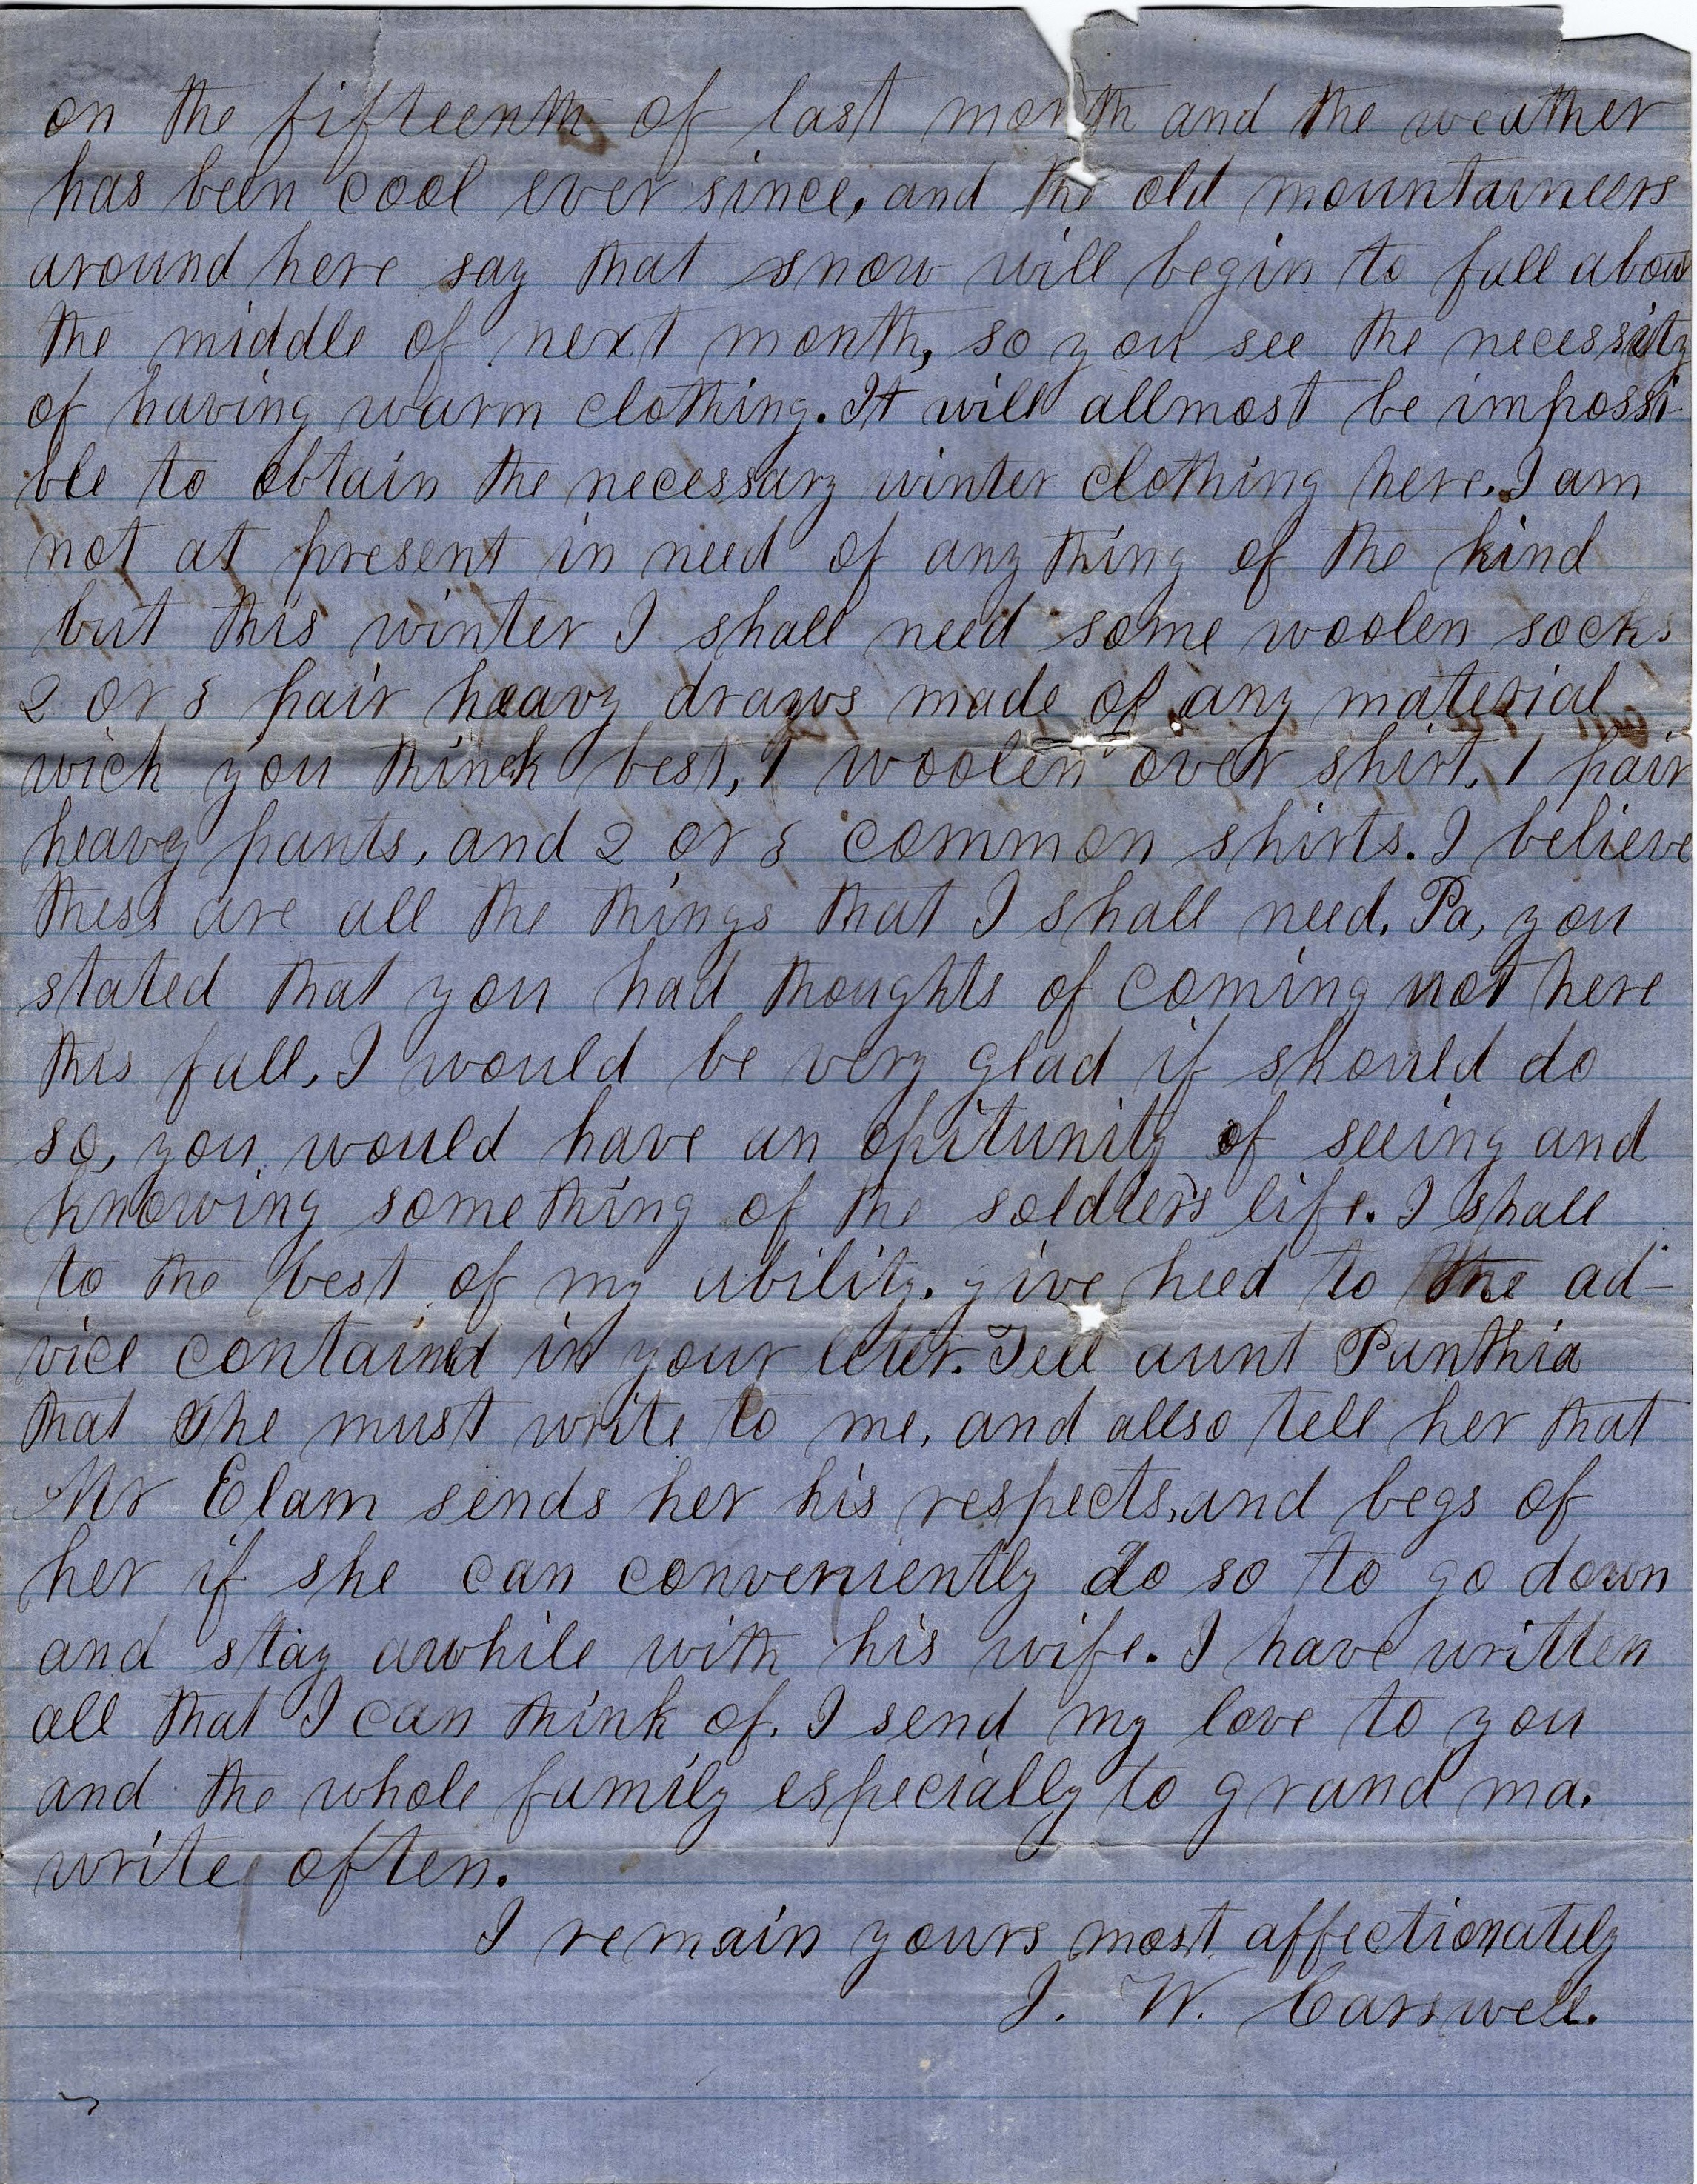 on the fifteenth of last month and the weather
has been cool ever since, and the old mountaineers
around here say that snow will begin to fall abou
the middle of next month, so you see the necessity
of having warm clothing. It will allmost be impossi-
ble to obtain the necessary winter clothing here. I am
not at present in need of any thing of the kind
but this winter I shall need some woolen socks
2 or 3 pair heavy draws made of any material
wich you think best, 1 woolen over shirt, 1 pair
heavy pants, and 2 or 3 common shirts. I believe
these are all the things that I shall need. Pa, you
stated that you had thoughts of coming not here
this fall, I would be very glad if should do
so, you would have an opitunity of seeing and
knowing some thing of the soldiers life. I shall
to the best of my ability. give heed to the ad-
vice contained in your letter. Tell aunt Panthia
that she must write to me, and allso tell her that
Mr Elam sends her his respects, and begs of
her if she can conveniently do so to go down
and stay awhile with his wife. I have written
all that I can think of. I send my love to you
and the whole family especially to grand ma.
write often.
I remain yours most affectionately
J. W. Carswell.